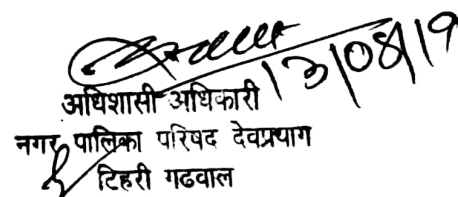 13/08/19
अधिशासी अधिकारी
नगर पालिका परिषद देवप्रयाग
टिहरी गढवाल